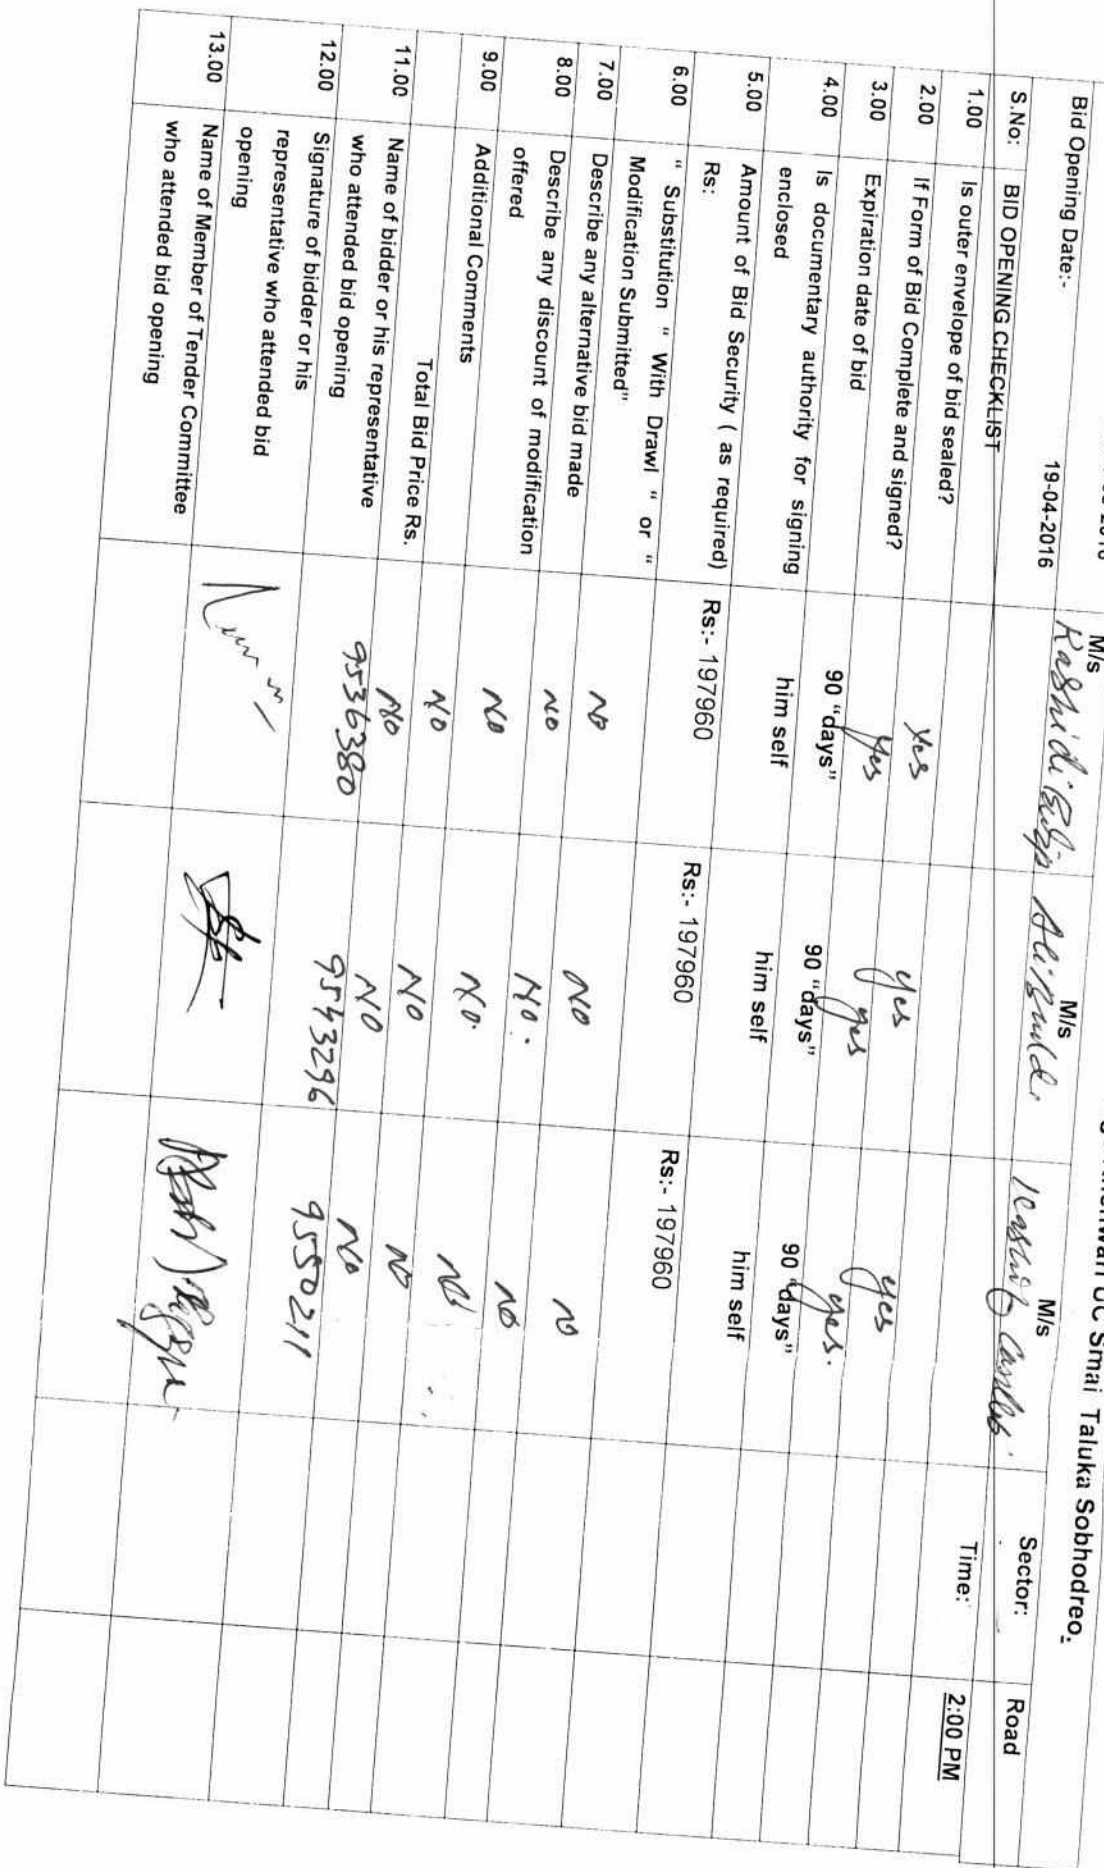 UC Smai Taluka Sobhodreo.
Bid Opening Date:- 19-04-2016 M/s M/s M/s Sector: Road
S.No: BID OPENING CHECKLIST Time: 2:00 PM
1.00 Is outer envelope of bid sealed? Yes Yes Yes
2.00 If Form of Bid Complete and signed? Yes Yes Yes.
3.00 Expiration date of bid 90 "days" 90 "days" 90 "days"
4.00 Is documentary authority for signing
enclosed him self him self him self
5.00 Amount of Bid Security ( as required)
Rs: Rs:- 197960 Rs:- 197960 Rs:- 197960
6.00 " Substitution " With Drawl " or "
Modification Submitted" No No No
7.00 Describe any alternative bid made No No. No
8.00 Describe any discount of modification
offered No No. No
9.00 Additional Comments No No No
Total Bid Price Rs. No No No
9536380 9543296 9550211
11.00 Name of bidder or his representative
who attended bid opening
12.00 Signature of bidder or his
representative who attended bid
opening
13.00 Name of Member of Tender Committee
who attended bid opening